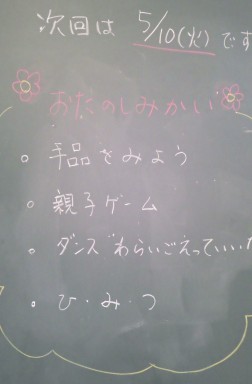 次回は 5/10(火)です
おたのしみかい
。手品をみよう
。親子ゲーム
。ダンス"わらいごえっていいな
。ひ・み・つ